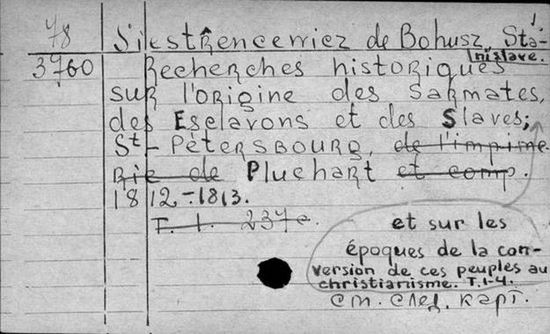 78
3760
Siestrencewiez de Bohusz, Sta-
nislave.
Recherches historiques
sur l'origine des Sarmates,
des Esclavons et des Slaves;
St-Pétersbourg, de l'imprime
rie de Pluchart et comp.
1812-1813.
T. 1. 237c.
et sur les
époques de la con-
version de ces peuples au
christianisme. T.1-4.
См. след. карт.